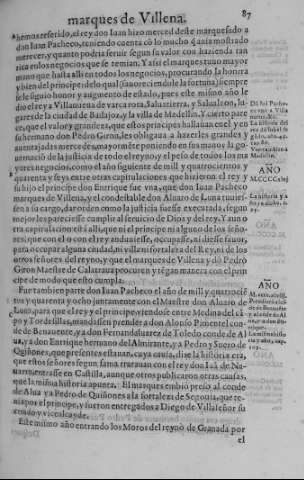 marques de Villena. 87
hemos referido, el rey don Iuan hizo merced deste marquesado a
don Iuan Pacheco, teniendo cuenta cō lo mucho q̃ auia mostrado
merecer, y quanto podria seruir segun su valor con hazienda tan
rica a los negocios que se temian. Y assi el marques tuuo mayor
mano que hasta alli en todos los negocios, procurando la honra
y bien del principe de lo qual
se le siguio honor y augmento de estado, pues este mismo año le
dio el rey a Villanueua de varca rota, Saluatierra, y Salualeon, lu-
gares de la ciudad de Badajoz, y la villa de Medellin. Y cierto pare
ce, que el valor y grandeza, que estos principes hallauan en el y en
su hermano don Pedro Giron, les obligaua a hazerles grandes y
auentajadas mercedes, mayormēte poniendo en sus manos la go-
uernació de la justicia de todo el reyno, y el peso de todos los ma
yores negocios, como el año siguiente de mill y quatrociētos y
quarenta y seys entre otras capitulaciones que hizieron el rey y
su hijo el principe don Enrique fue vna, que don Iuan Pacheco
marques de Villena, y el condestable don Aluaro de Luna tuuies-
sen a su cargo, dar orden como la justicia fuesse executada, segun
mejor les pareciesse cumplir al seruicio de Dios y del rey. Y aun o
tra capitulacion esta alli, que ni el principe ni alguno de los seño-
res; que con el o con el rey anduuiesse, ocupasse, ni
para ocupar alguna ciudad, ni villa ni fortaleza del Rey, ni de los
otros señores del reyno, y que el marques de Villena y dō Pedro
Giron Maestre de Calatraua procuren y tēgan manera con el prin
cipe de modo que esto se cumpla.
Fue tambien parte don Iuan Pacheco el año de mill y quatrociē
tos y quarenta y ocho juntamente con el Maestre don Aluaro de
Luna, para que el rey y el principe, viendose entre Medina del cā
po y Tordesillas, mandassen prender a don Alonso Pimentel con-
de de Benauente, y a don Fernandaluarez de Toledo conde de Al
ua, y a don Enrique hermano del Almirante, y a Pedro y Suero de
Quiñones, que presentes estauan, cuya causa, dize la historia era,
que estos señores segun fama tratauan con el rey don Iuā de Na-
uarra, entrasse en Castilla, aunque otros publicaron otras causas,
que la misma historia apunta. El marques embió preso al conde
de Alua y a Pedro de Quiñones a la fortaleza de Segouia, que te-
nia por el principe, y fueron entregados a Diego de Villaseñor su
criado y vicealcayde.
Este mismo año entrando los Moros del reyno de Granada por
el
AÑO
AÑO